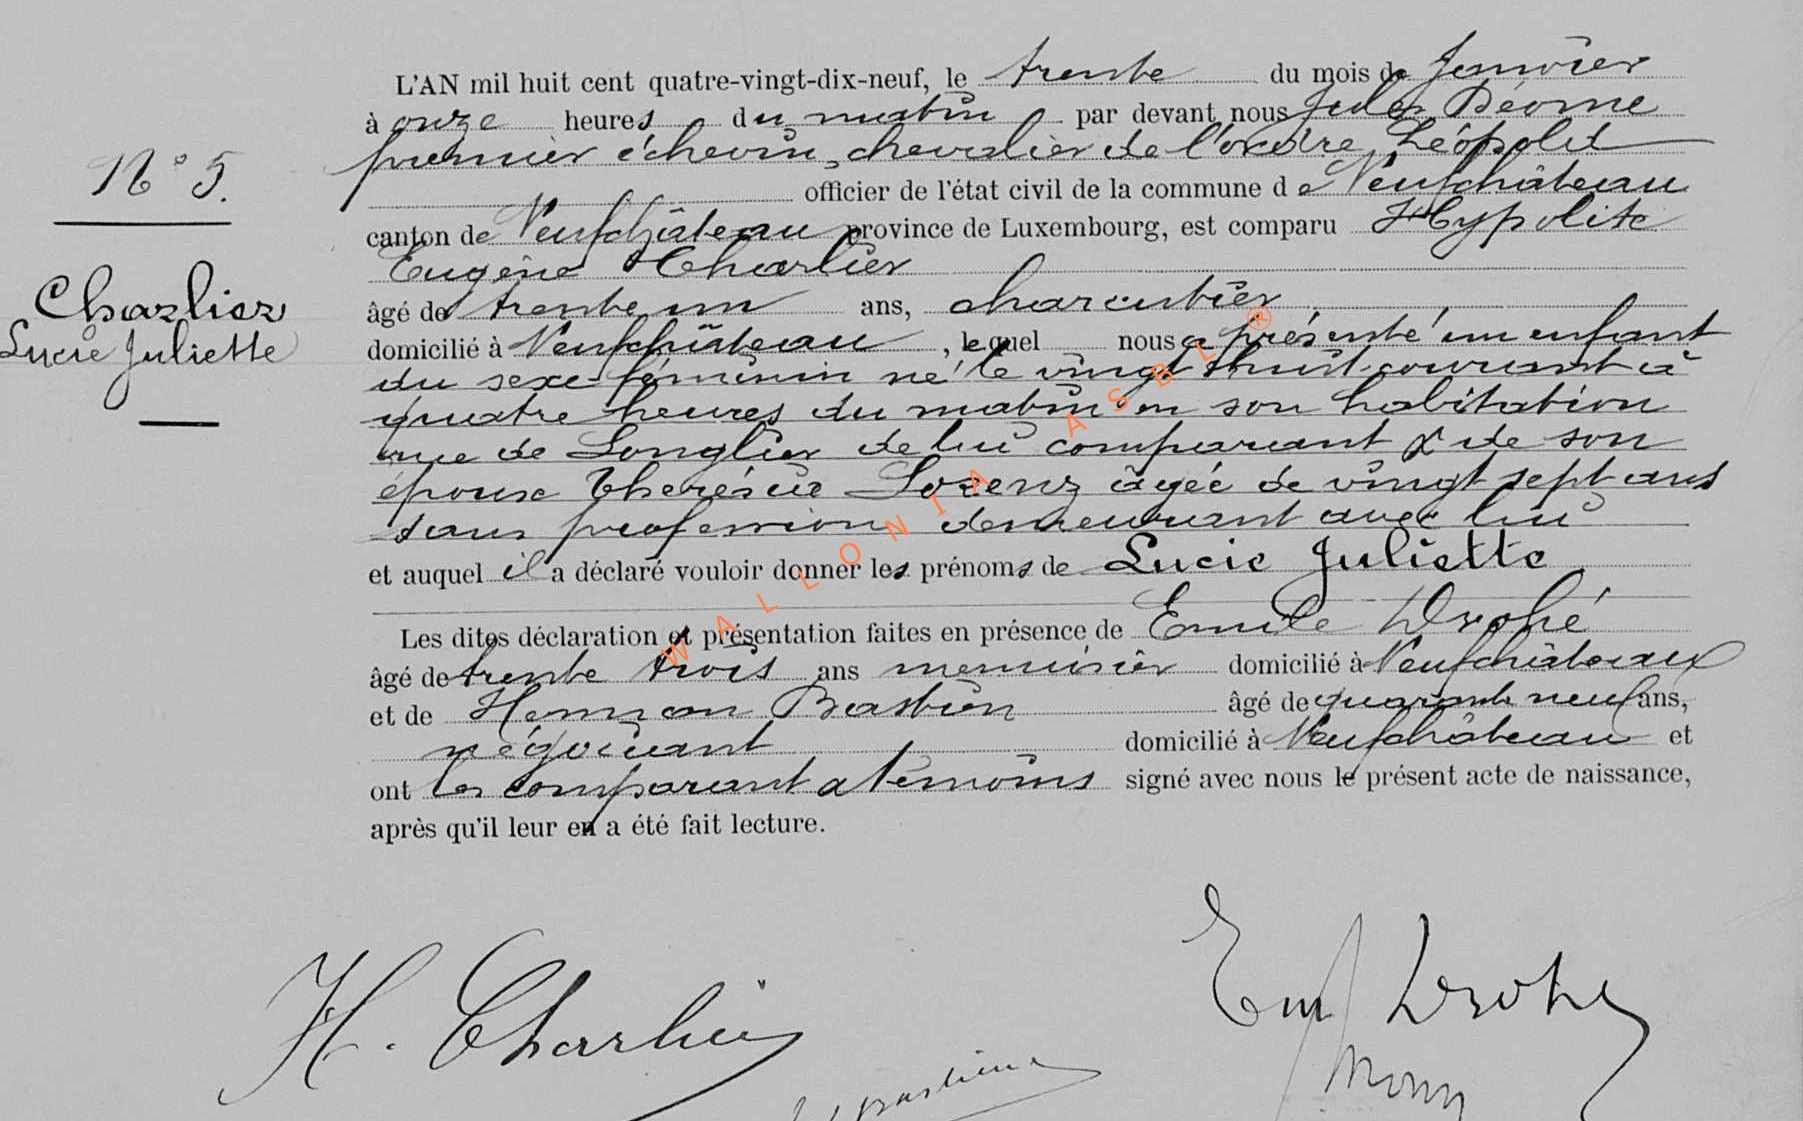 N° 5.
Charlier
Lucie Juliette
L'AN mil huit cent quatre-vingt-dix-neuf, le trente du mois de Janvier
à onze heures du matin par devant nous Jules Déome
premier échevin, chevalier de l'ordre Léopold
officier de l'état civil de la commune de Neufchâteau
canton de Neufchâteau province de Luxembourg, est comparu Hypolite
Eugène Charlier
âgé de trente un ans, charcutier
domicilié à Neufchâteau, lequel nous a présenté un enfant
du sexe féminin né le vingt huit courant à
quatre heures du matin en son habitation
rue de Longlier de lui comparant & de son
épouse Therésie Lorenz âgée de vingt sept ans
sans profession demeurant avec lui
et auquel il a déclaré vouloir donner les prénoms de Lucie Juliette
Les dites déclaration et présentation faites en présence de Emile Drohé
âgé de trente trois ans menuisier domicilié à Neufchâteau
et de Herman Bastien âgé de quarante neuf ans,
négociant domicilié à Neufchâteau et
ont les comparant & témoins signé avec nous le présent acte de naissance,
après qu'il leur en a été fait lecture.
WALLONIA ASBL ®
H. Charlier
Em Drohé
Bastien